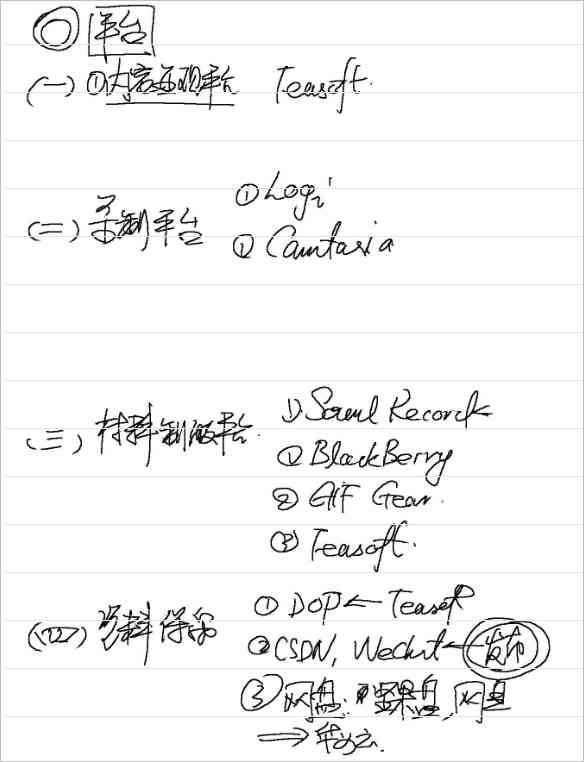 ○ 平台
(一) ①内容呈现平台 Teasoft.
(二) 录制平台
① Logi
① Camtasia
(三) 材料制版平台.
① Sound Record
① BlackBerry
② GIF Gear.
③ Teasoft.
(四) 资料保留
① DOP ← Teasof
② CSDN, Wechat ← 发布
③ 网盘: 坚果盘, 网盘
⇒